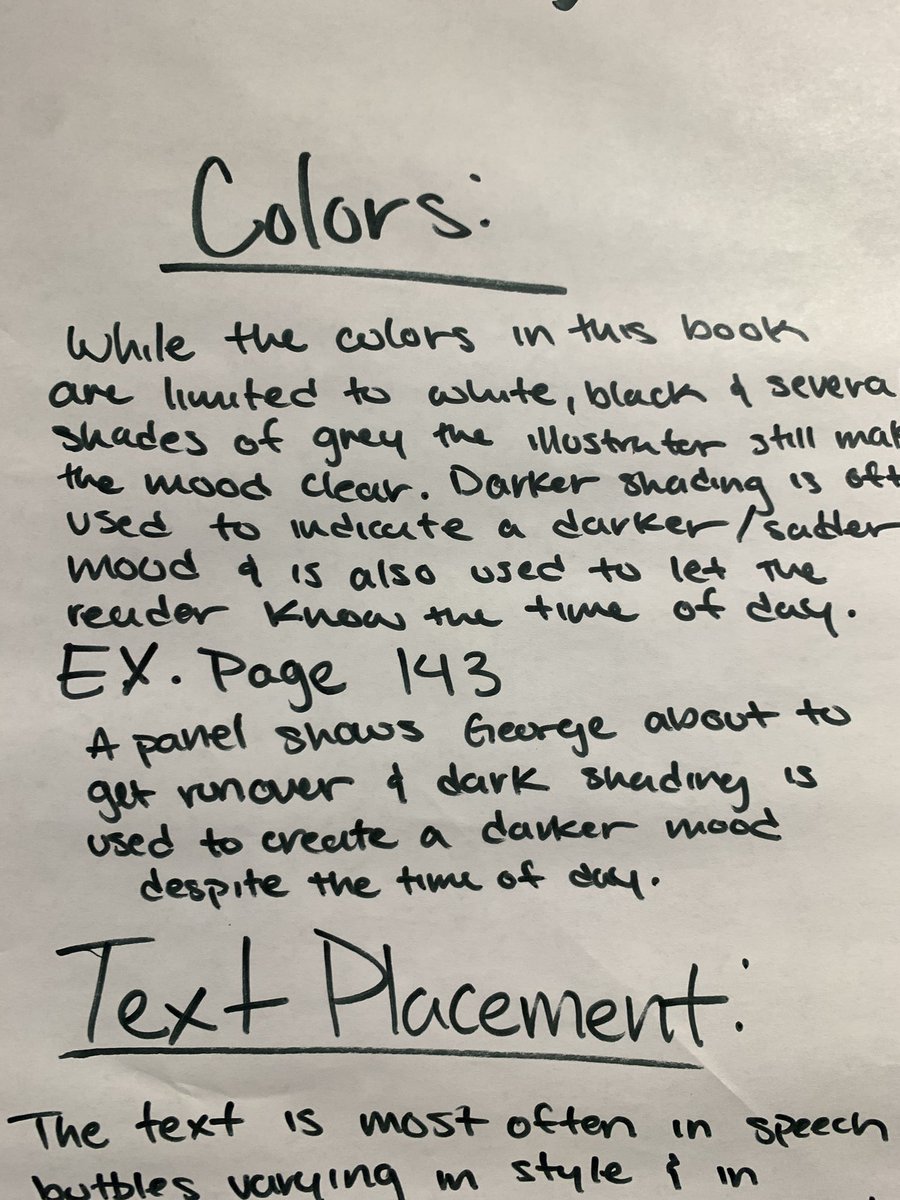 Colors:
While the colors in this book
are limited to white, black & severa
shades of grey the illustrater still mak
the mood clear. Darker shading is oft
used to indicate a darker/sadder
mood & is also used to let the
reader know the time of day.
EX. Page 143
A panel shows George about to
get runover & dark shading is
used to create a darker mood
despite the time of day.
Text Placement:
The text is most often in speech
bubbles varying in style & in